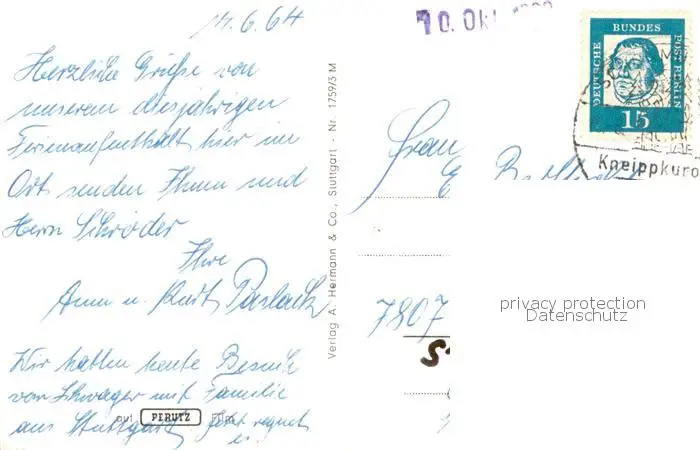 14.6.64
Herzliche Grüße von
unserem diesjährigen
Ferienaufenthalt hier im
Ort senden Ihnen und
Herrn Schröder
Ihre
Anna u. Kurt Paslack
Wir hatten heute Besuch
von Schwager mit Familie
aus Stuttgart jetzt regnet
es.
auf PERUTZ Film
Verlag A. Hermann & Co., Stuttgart - Nr. 1759/3 M
10. Okt.
DEUTSCHE BUNDES POST BERLIN
15
Kneippkuro
Frau
E.
7807
privacy protection
Datenschutz